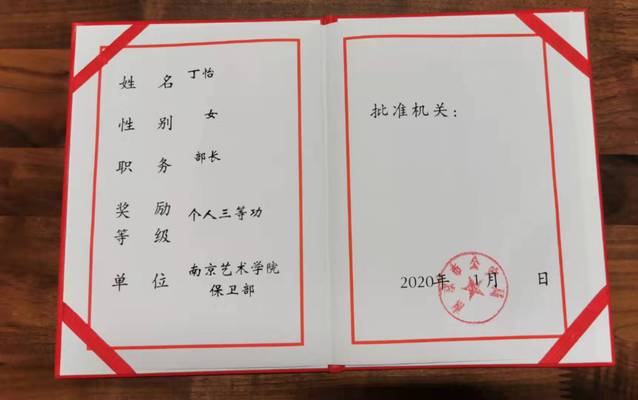 姓 名 丁怡
性 别 女
职 务 部长
奖 励 个人三等功
等 级
单 位 南京艺术学院
保卫部
批准机关：
2020年 1月 日